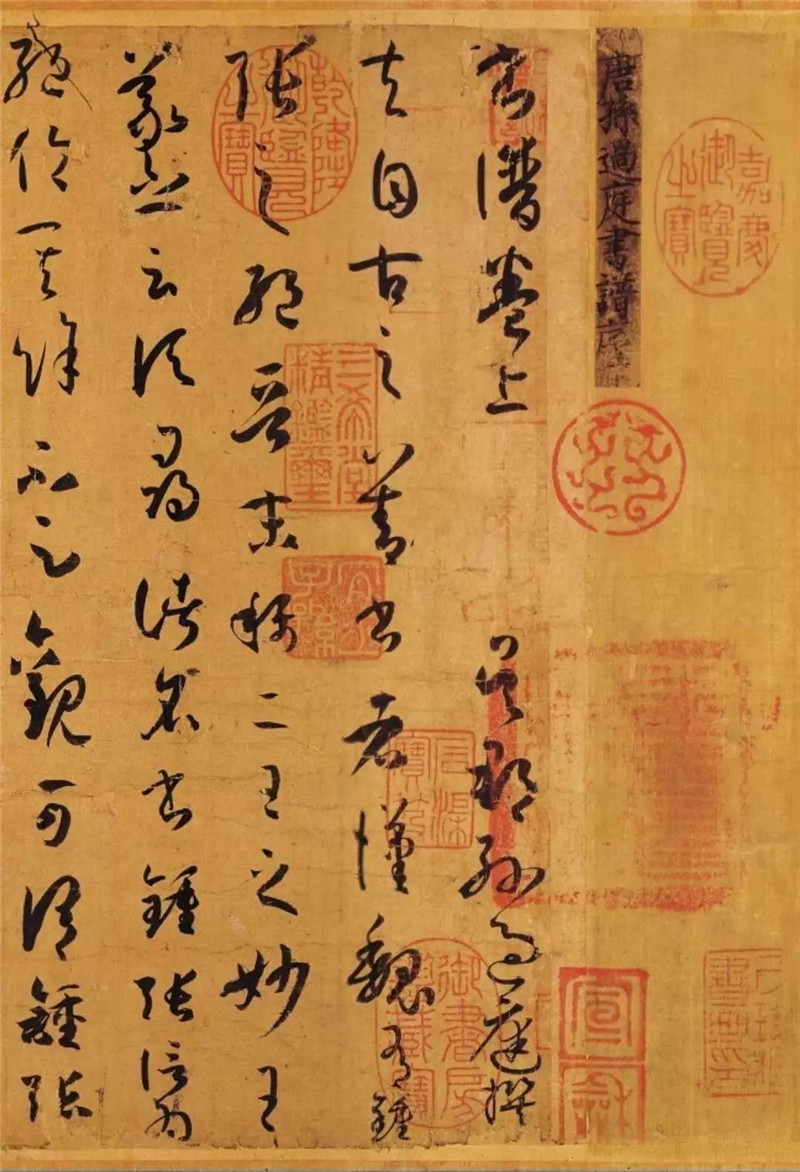 嘉慶御覽之寶
唐孫過庭書譜序
書譜卷上
吳郡孫過庭撰
夫自古之善書者漢魏有鍾
張之絕晉末稱二王之妙王
羲之云頃尋諸名書鍾張信為
絕倫其餘不足觀可謂鍾張
乾隆御覽之寶
三希堂精鑑璽
宜子孫
石渠寶笈
御書房鑒藏寶
宣龢